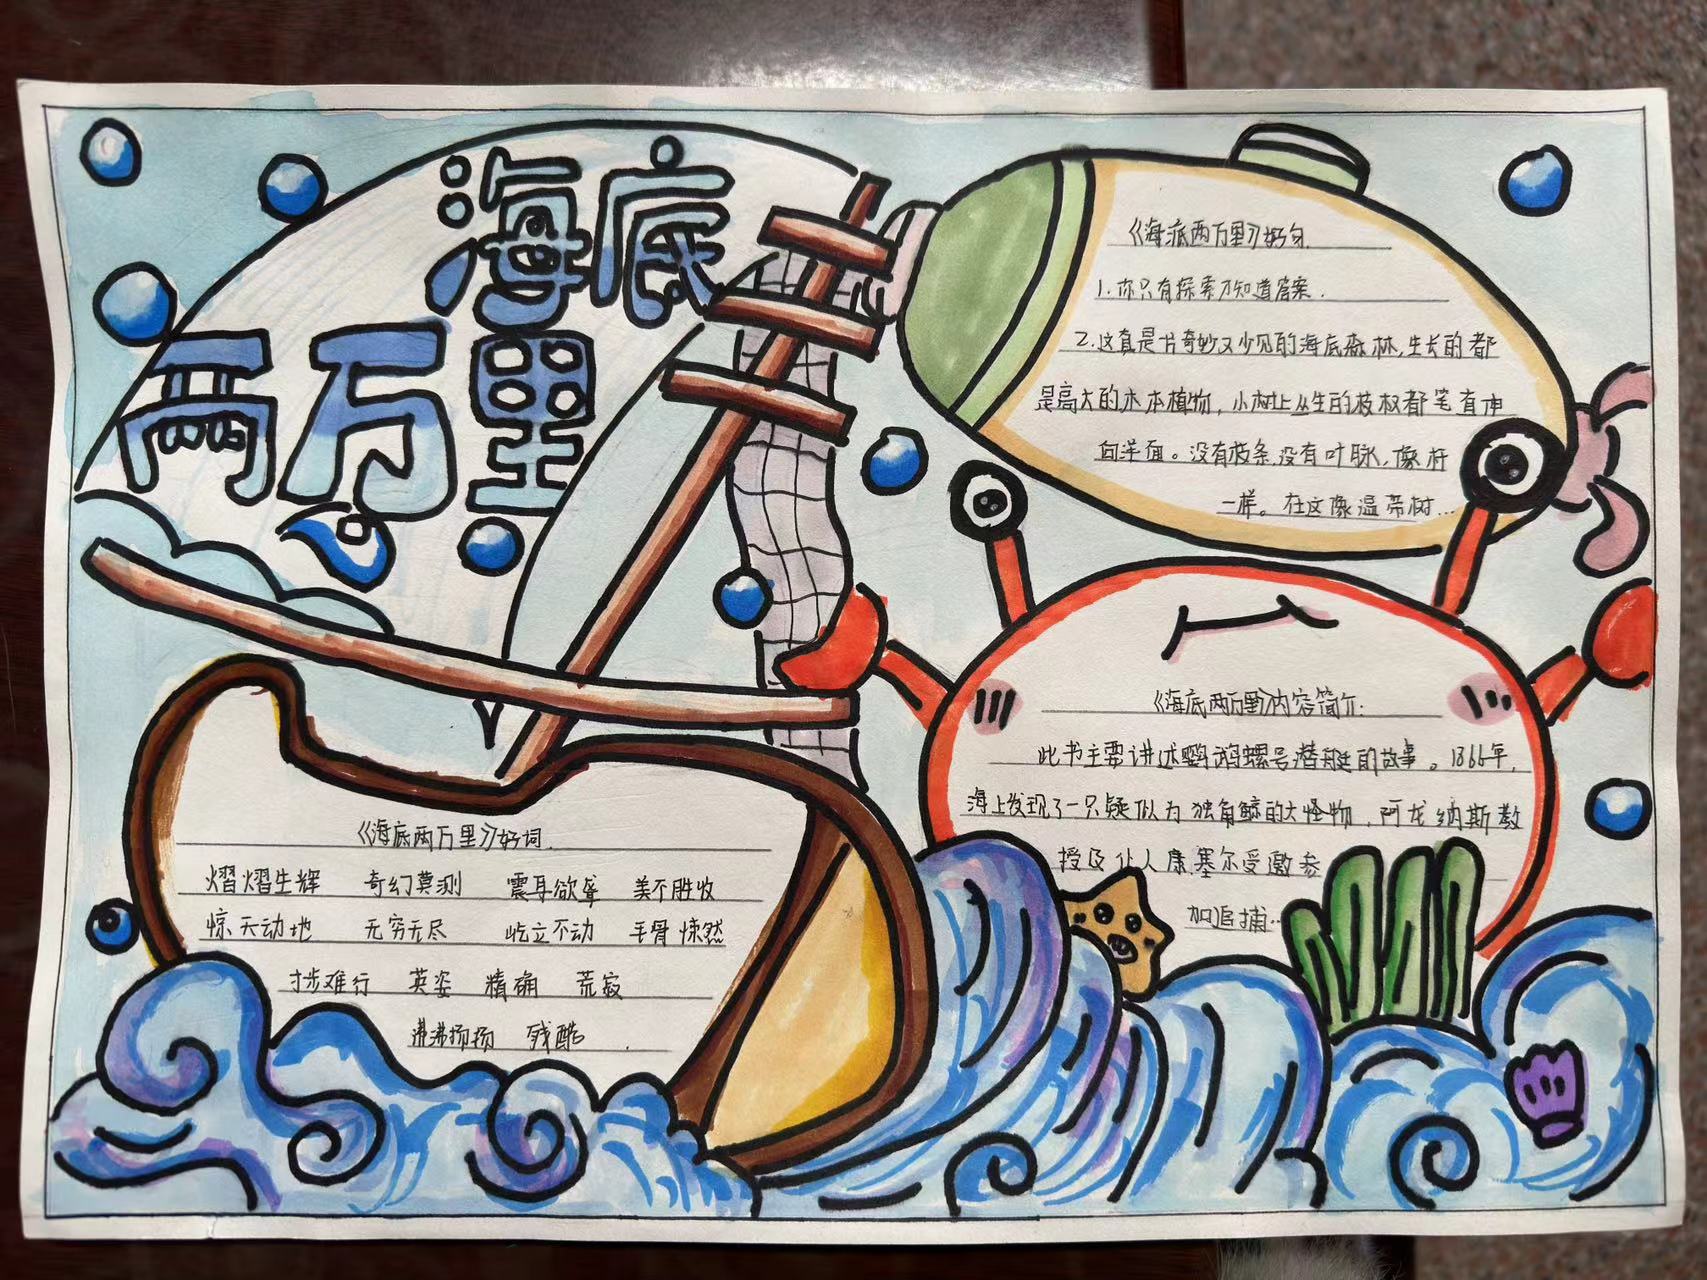 海底
两万里
《海底两万里》好句
1.你只有探索才知道答案.
2.这真是片奇妙又少见的海底森林,生长的都
是高大的木本植物,小树上丛生的枝杈都笔直伸
向洋面。没有枝条,没有叶脉,像杆
一样。在这像温带树...
《海底两万里》内容简介:
此书主要讲述鹦鹉螺号潜艇的故事。1866年,
海上发现了一只疑似为独角鲸的大怪物,阿龙纳斯教
授及仆人康塞尔受邀参
加追捕...
《海底两万里》好词.
熠熠生辉 奇幻莫测 震耳欲聋 美不胜收
惊天动地 无穷无尽 屹立不动 毛骨悚然
寸步难行 英姿 精确 荒寂
沸沸扬扬 残酷 .